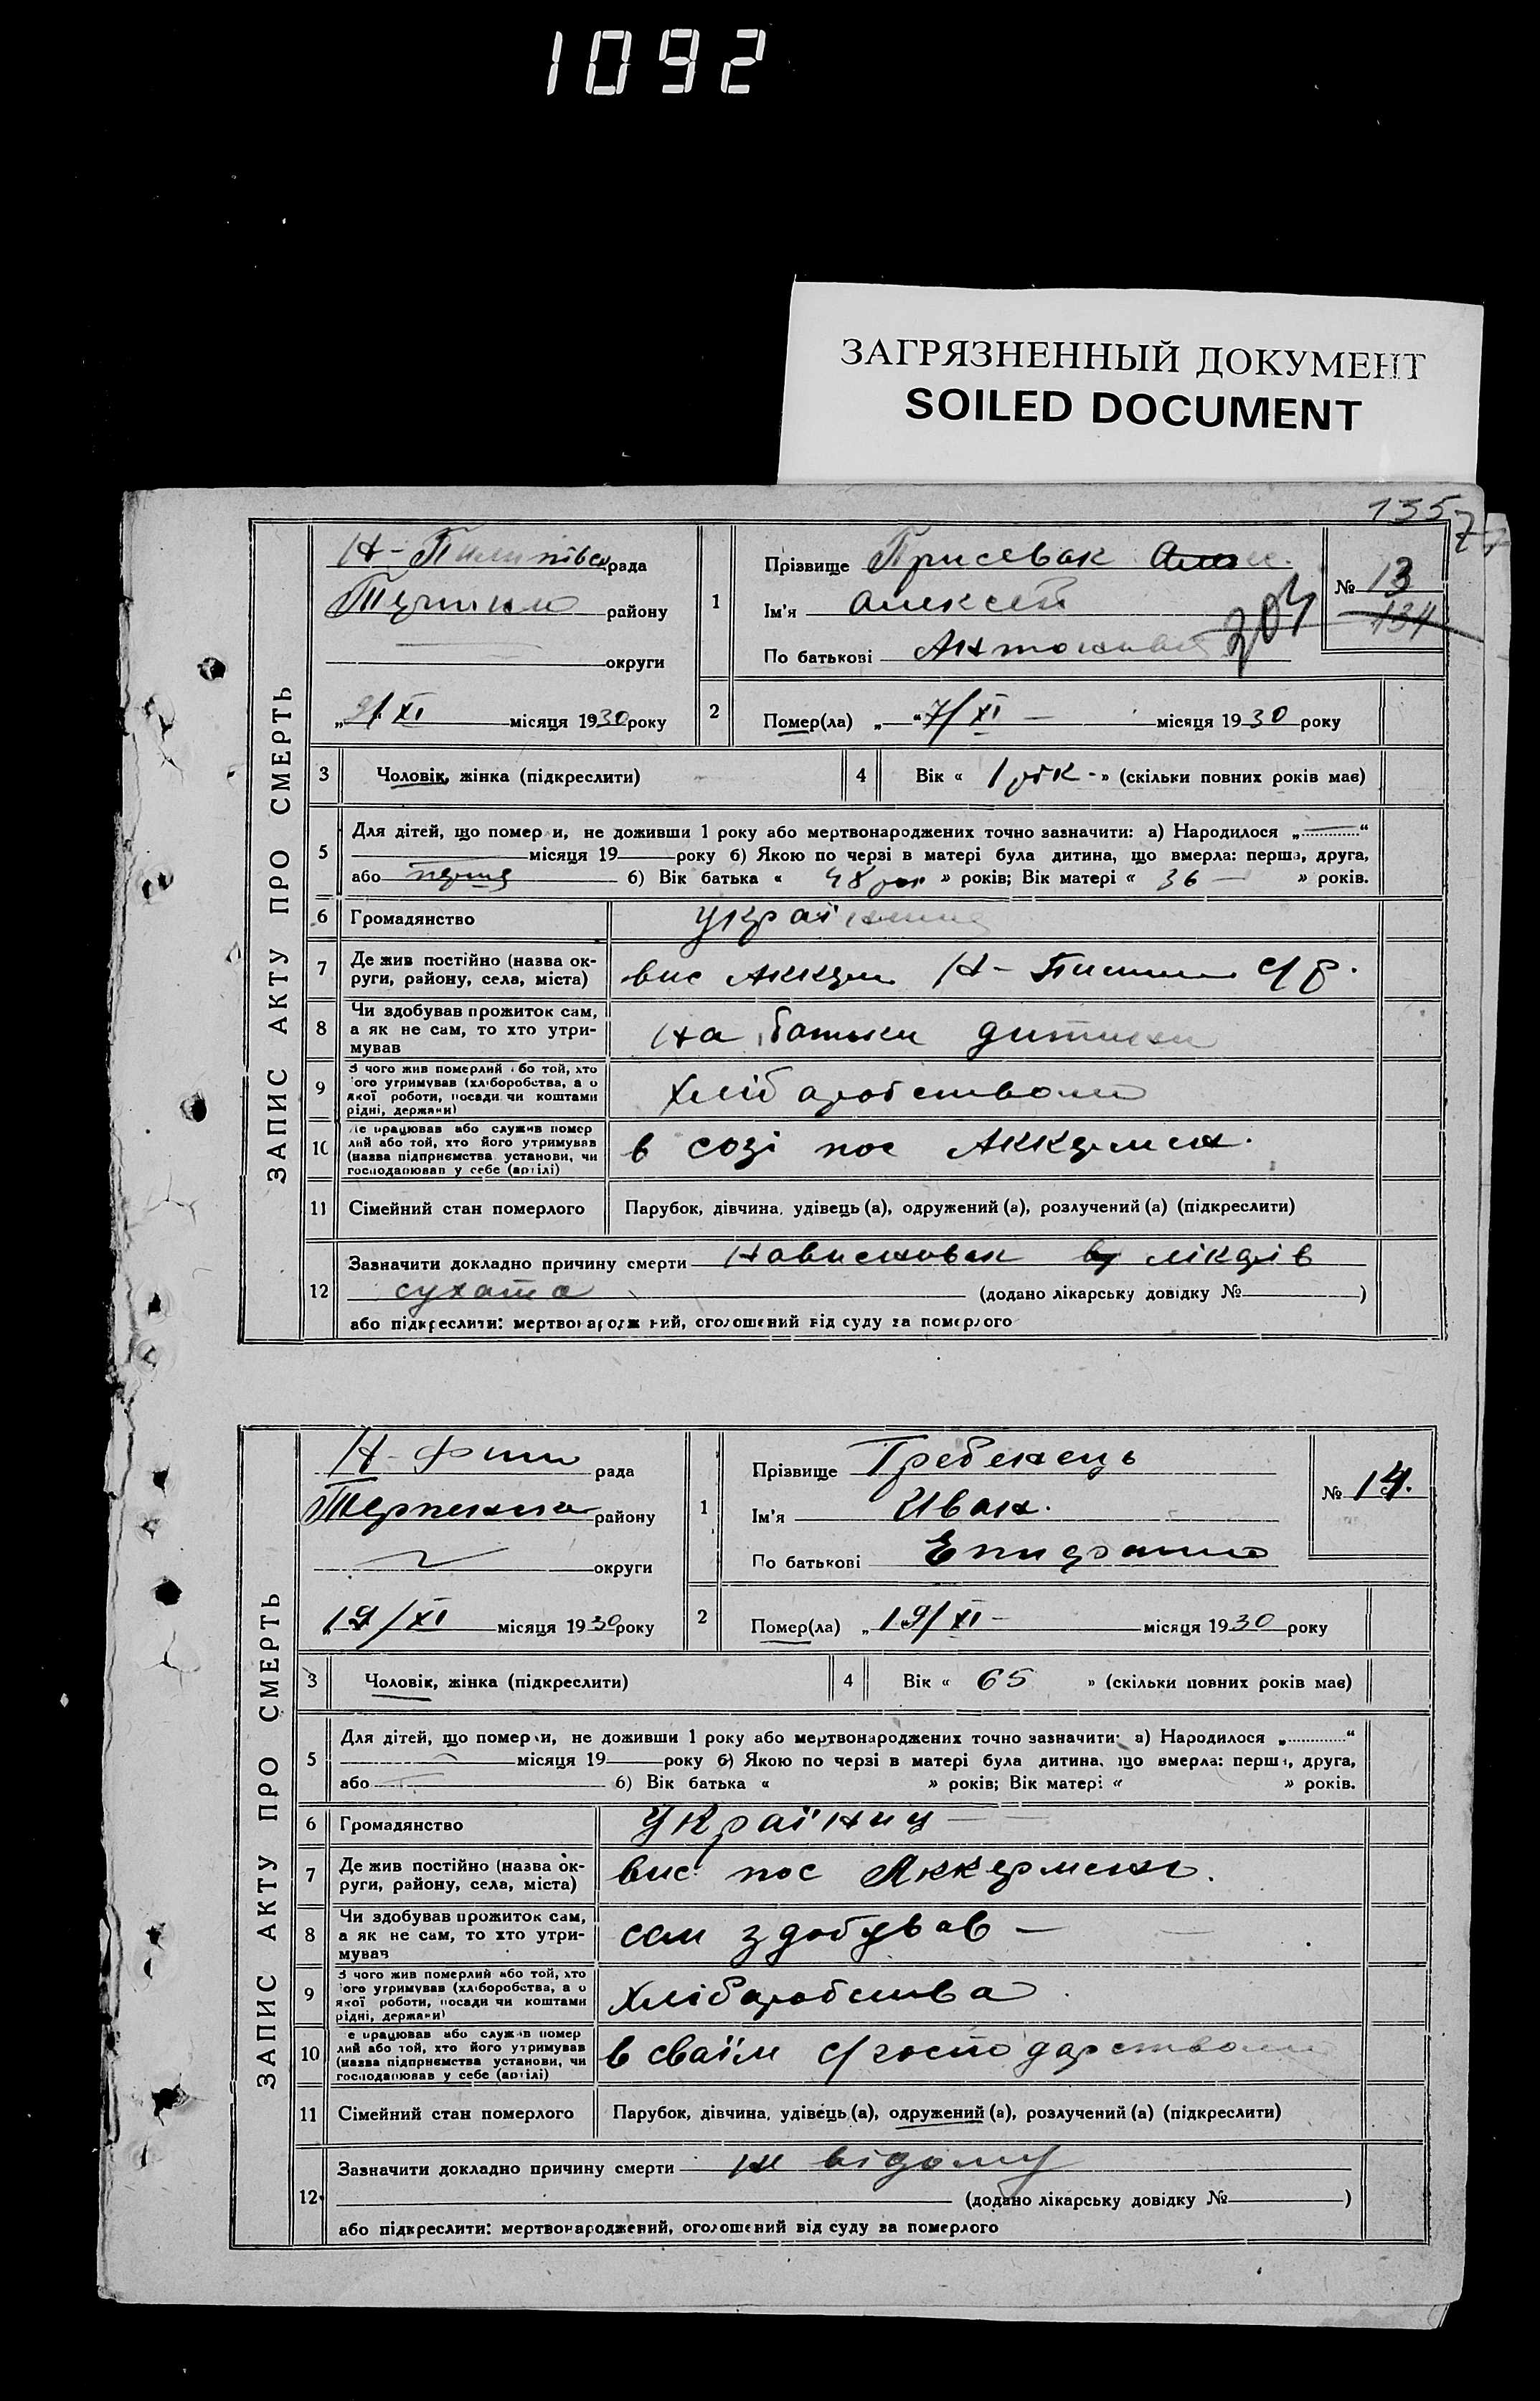 1092
ЗАГРЯЗНЕННЫЙ ДОКУМЕНТ
SOILED DOCUMENT
135
ЗАПИС АКТУ ПРО СМЕРТЬ
рада
району
округи
„ /XI місяця 1930 року
1
Прізвище Присевак
Ім'я Алексей
По батькові
204
№ 13
134
2
Помер(ла) „—“ 7/XI — місяця 1930 року
3
Чоловік, жінка (підкреслити)
4
Вік « 1 рік - » (скільки повних років має)
5
Для дітей, що померли, не доживши 1 року або мертвонароджених точно зазначити: а) Народилося „ “
місяця 19 року б) Якою по черзі в матері була дитина, що вмерла: перша, друга,
або б) Вік батька « 48 » років; Вік матері « 36 — » років.
6
Громадянство
7
Де жив постійно (назва ок-
руги, району, села, міста)
вис с/р.
8
Чи здобував прожиток сам,
а як не сам, то хто утри-
мував
на
9
З чого жив померлий або той, хто
його утримував (хліборобства, а о
якої роботи, посади чи коштами
рідні, держави)
Хліб аробством
10
Де працював або служив помер
лий або той, хто його утримував
(назва підприємства установи, чи
господарював у себе (артілі)
в созі пос
11
Сімейний стан померлого
Парубок, дівчина, удівець (а), одружений (а), розлучений (а) (підкреслити)
12
Зазначити докладно причину смерти лікарів
сухота (додано лікарську довідку № )
або підкреслити: мертвонароджений, оголошений від суду за померлого
ЗАПИС АКТУ ПРО СМЕРТЬ
рада
району
округи
„19/XI місяця 1930 року
1
Прізвище Гребенець
Ім'я Иван.
По батькові
№ 14.
2
Помер(ла) „ 19/XI — місяця 1930 року
3
Чоловік, жінка (підкреслити)
4
Вік « 65 » (скільки повних років має)
5
Для дітей, що померли, не доживши 1 року або мертвонароджених точно зазначити: а) Народилося „ “
місяця 19 року б) Якою по черзі в матері була дитина, що вмерла: перша, друга,
або б) Вік батька « » років; Вік матері « » років.
6
Громадянство
Українец
7
Де жив постійно (назва ок-
руги, району, села, міста)
вис пос Аккермень.
8
Чи здобував прожиток сам,
а як не сам, то хто утри-
мував
сам здобував —
9
З чого жив померлий або той, хто
його утримував (хліборобства, а о
якої роботи, посади чи коштами
рідні, держави)
Хлібаробства
10
Де працював або служив помер
лий або той, хто його утримував
(назва підприємства установи, чи
господарював у себе (артілі)
в сваїм с/господарством
11
Сімейний стан померлого
Парубок, дівчина, удівець (а), одружений (а), розлучений (а) (підкреслити)
12
Зазначити докладно причину смерти не відому
(додано лікарську довідку № )
або підкреслити: мертвонароджений, оголошений від суду за померлого